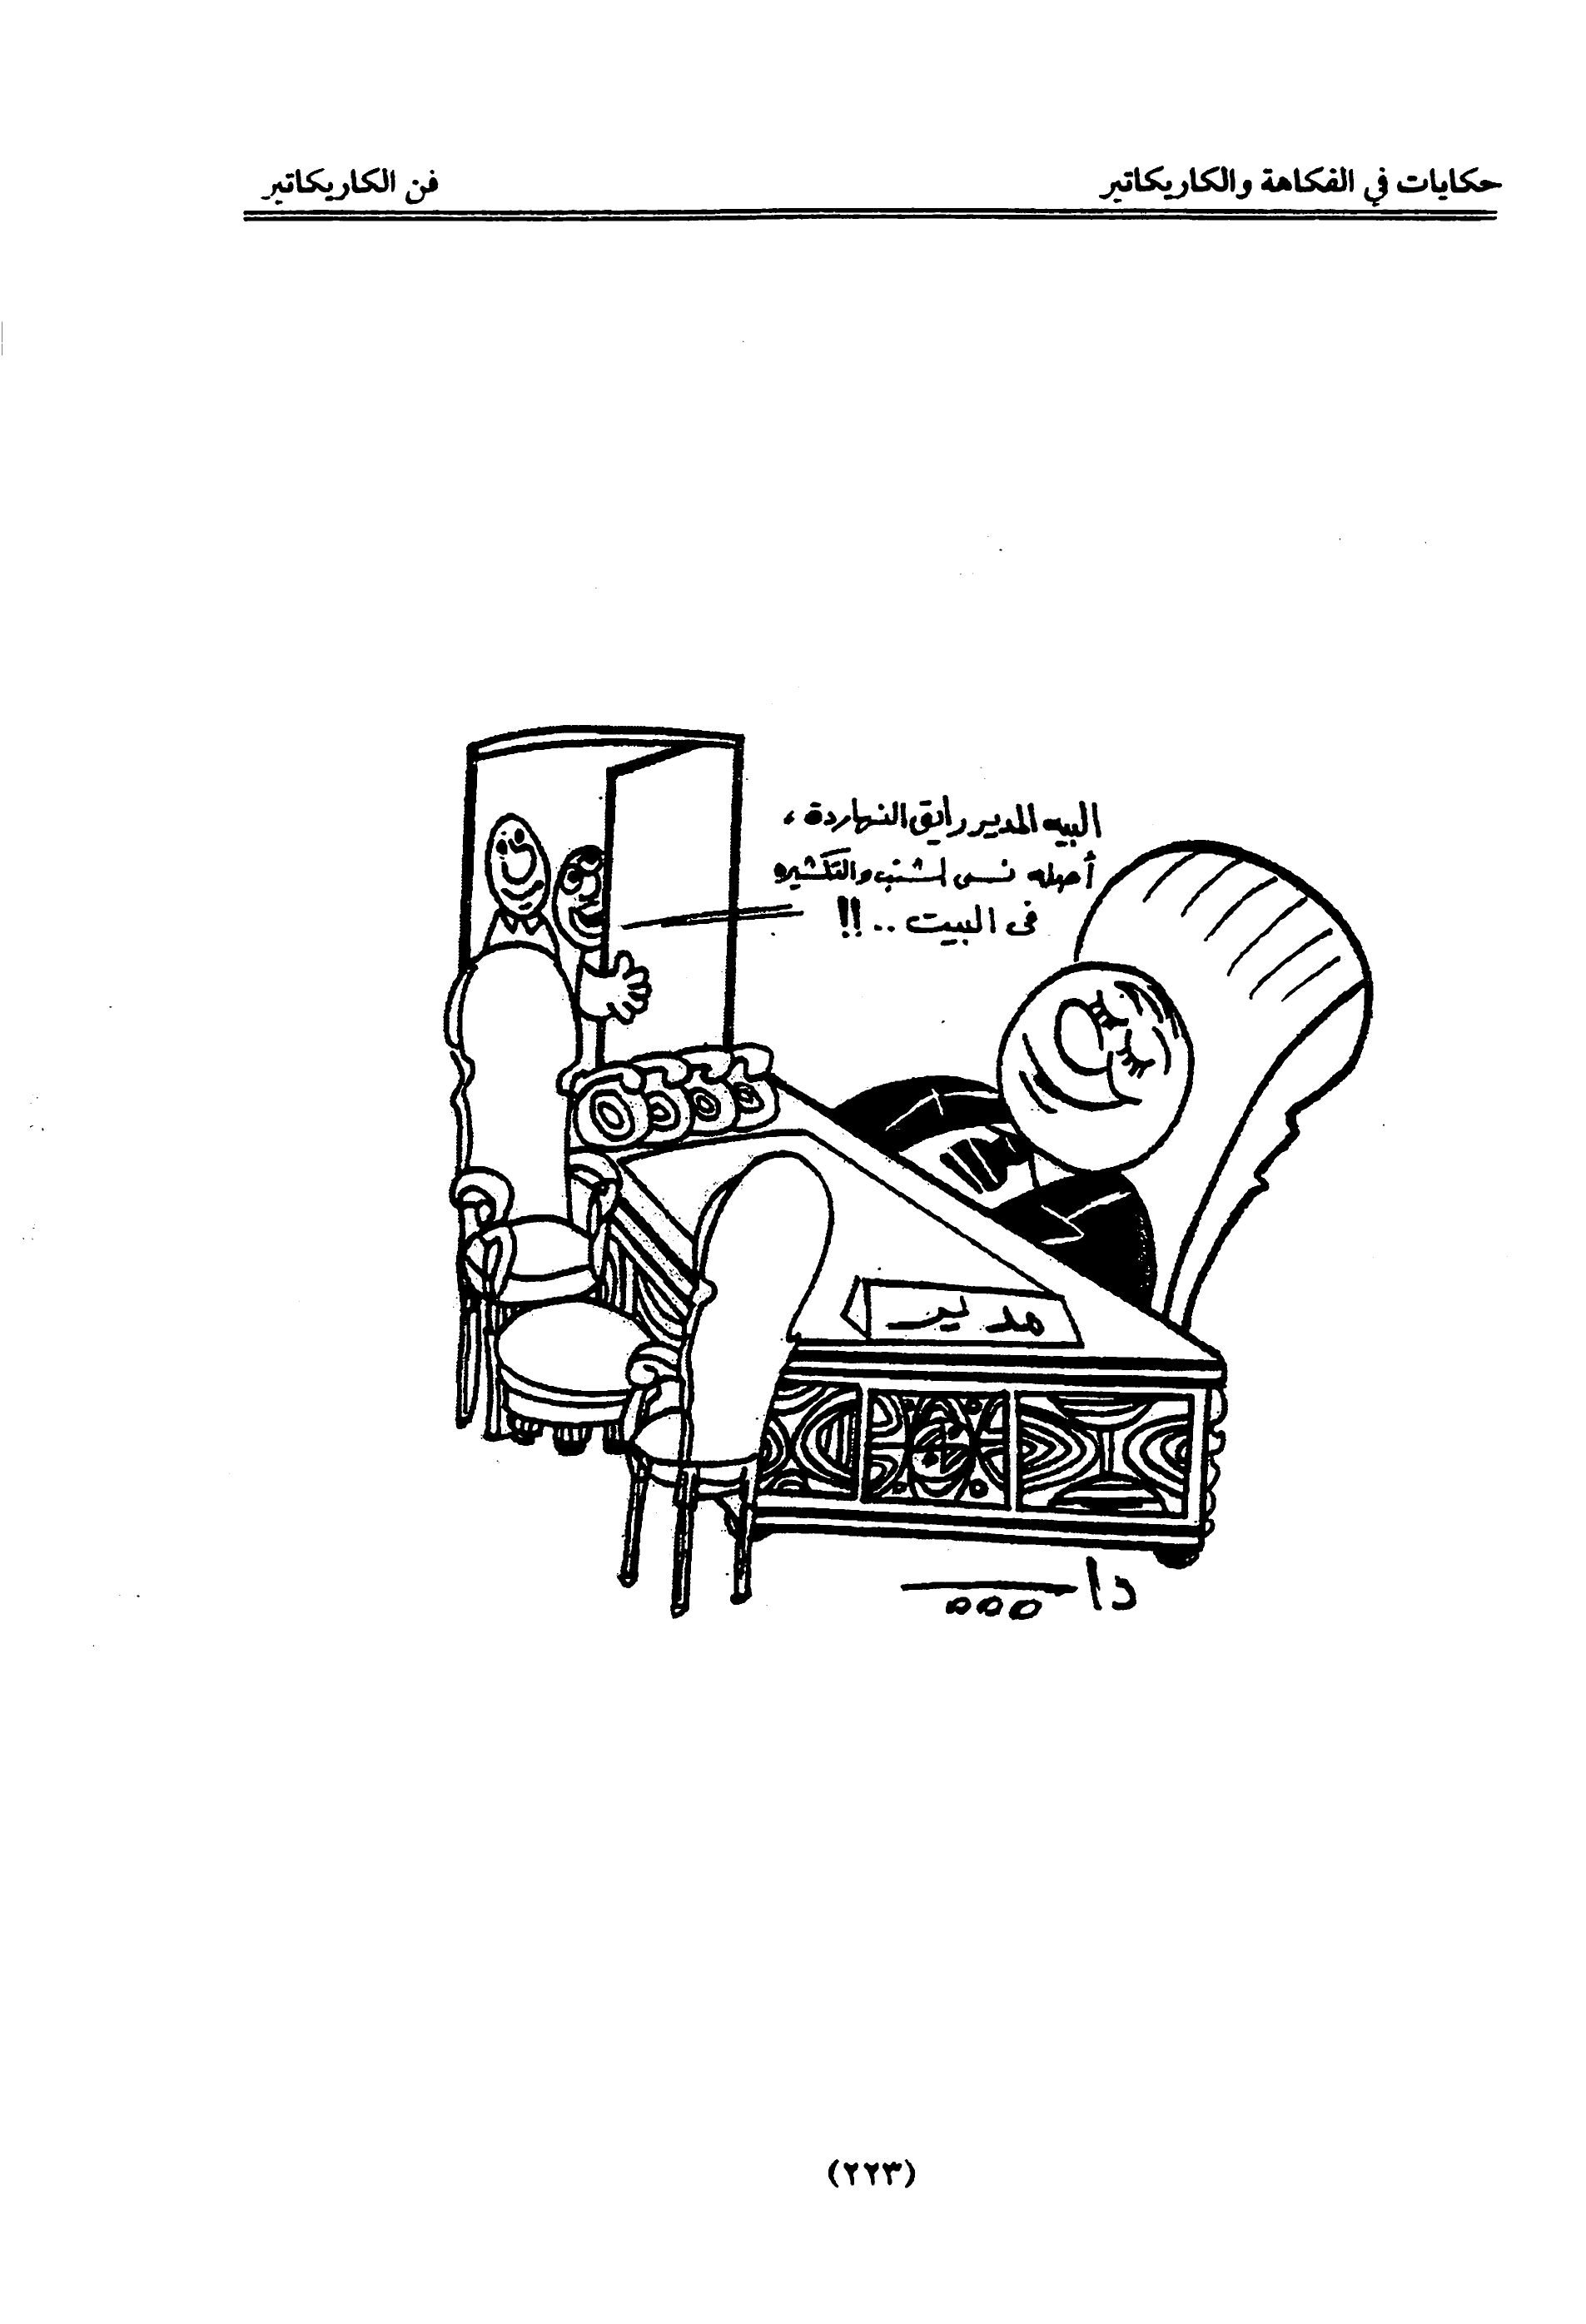 حكايات في الفكاهة والكاريكاتير
فن الكاريكاتير
البيه المدير رايق النهاردة،
أصله نسى الشنب والتكشيره
فى البيت ..!!
مدير
(٢٢٣)